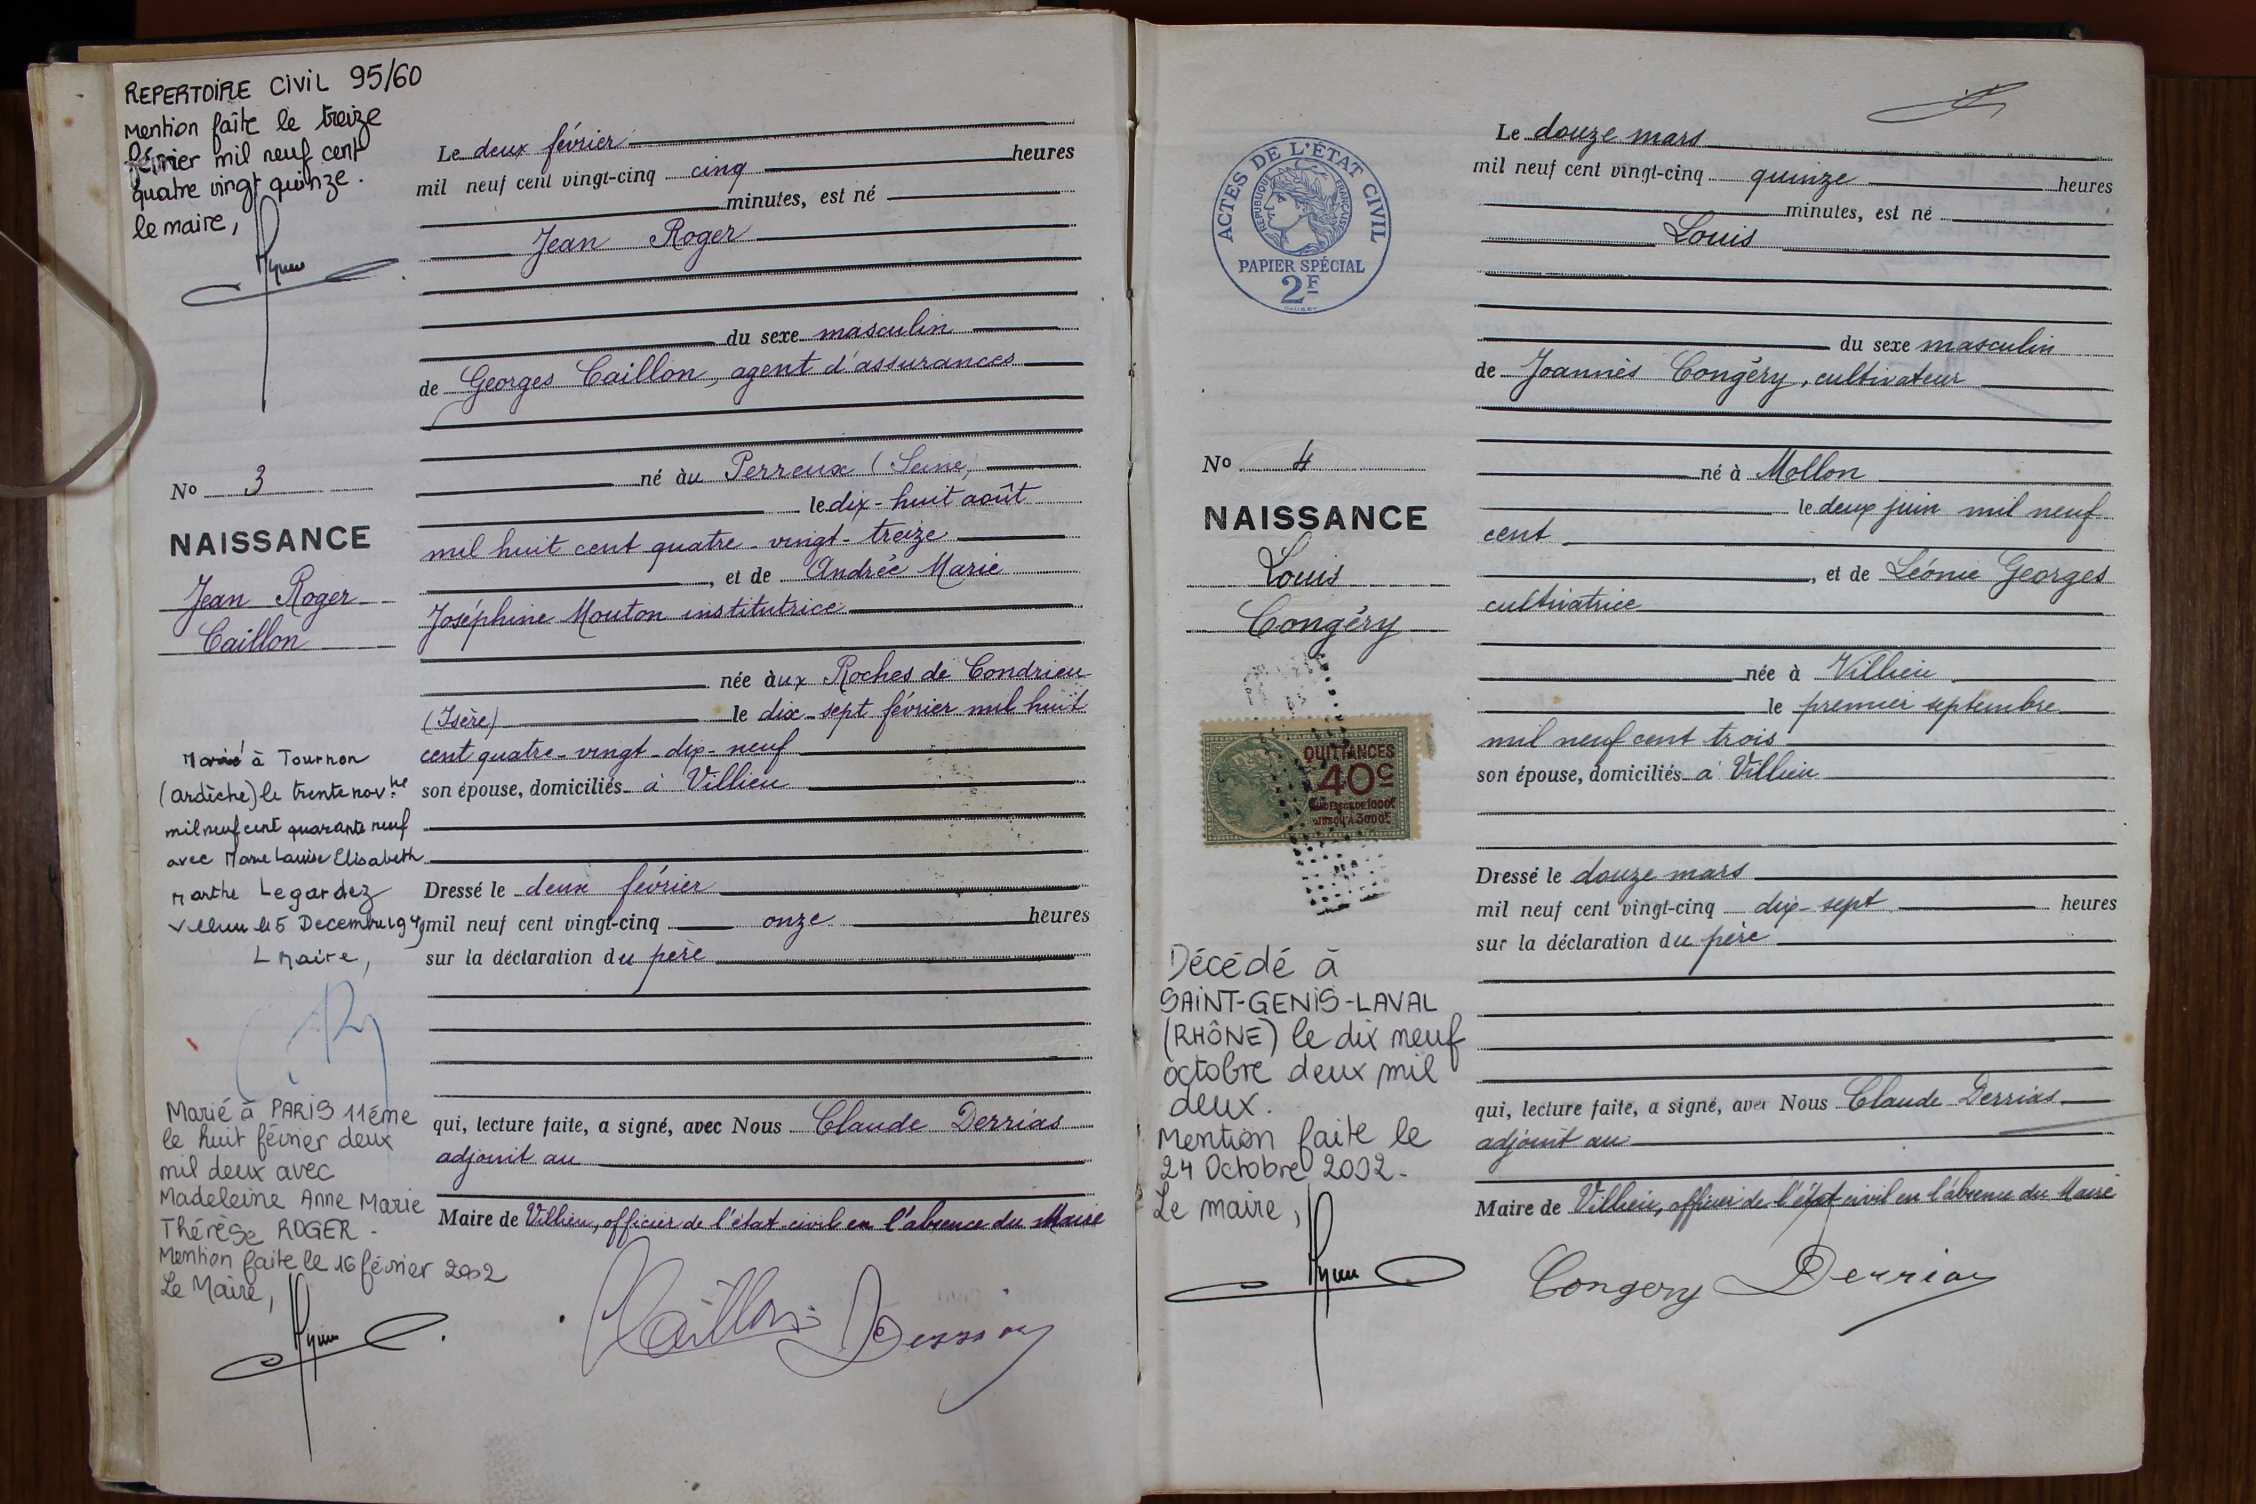 REPERTOIRE CIVIL 95/60
Mention faîte le treize
février mil neuf cent
quatre vingt quinze.
le maire,
Le deux février
mil neuf cent vingt-cinq cinq heures
minutes, est né
Jean Roger
du sexe masculin
de Georges Caillon, agent d'assurances
né àu Perreux (Seine)
le dix-huit août
mil huit cent quatre-vingt-treize
, et de Andrée Marie
Joséphine Mouton institutrice
née àux Roches de Condrieu
(Isère) le dix-sept février mil huit
cent quatre-vingt-dix-neuf
son épouse, domiciliés à Villieu
Dressé le deux février
mil neuf cent vingt-cinq onze heures
sur la déclaration du père
qui, lecture faite, a signé, avec Nous Claude Derrias
adjoint au
Maire de Villieu, officier de l'état civil en l'absence du Maire
Caillon Derrias
No 3
NAISSANCE
Jean Roger
Caillon
Marié à Tournon
(Ardèche) le trente nov.bre
mil neuf cent quarante neuf
avec Marie Louise Elisabeth
Marthe Legardez
Villieu le 5 Decembre 1949
L Maire,
Marié à PARIS 11éme
le huit février deux
mil deux avec
Madeleine Anne Marie
Thérèse ROGER.
Mention faite le 16 février 2002
Le Maire,
ACTES DE L'ÉTAT CIVIL
RÉPUBLIQUE FRANÇAISE
PAPIER SPÉCIAL
2F
Le douze mars
mil neuf cent vingt-cinq quinze heures
minutes, est né
Louis
du sexe masculin
de Joannès Congéry, cultivateur
né à Mollon
le deux juin mil neuf
cent
, et de Léonie Georges
cultivatrice
née à Villieu
le premier septembre
mil neuf cent trois
son épouse, domiciliés à Villieu
Dressé le douze mars
mil neuf cent vingt-cinq dix-sept heures
sur la déclaration du père
qui, lecture faite, a signé, avec Nous Claude Derrias
adjoint au
Maire de Villieu, officier de l'état civil en l'absence du Maire
Congery Derrias
No 4
NAISSANCE
Louis
Congéry
QUITTANCES
40c
1000F
JUSQU'À 3000F
Décédé à
SAINT-GENIS-LAVAL
(RHÔNE) le dix neuf
octobre deux mil
deux.
Mention faite le
24 Octobre 2002.
Le maire,